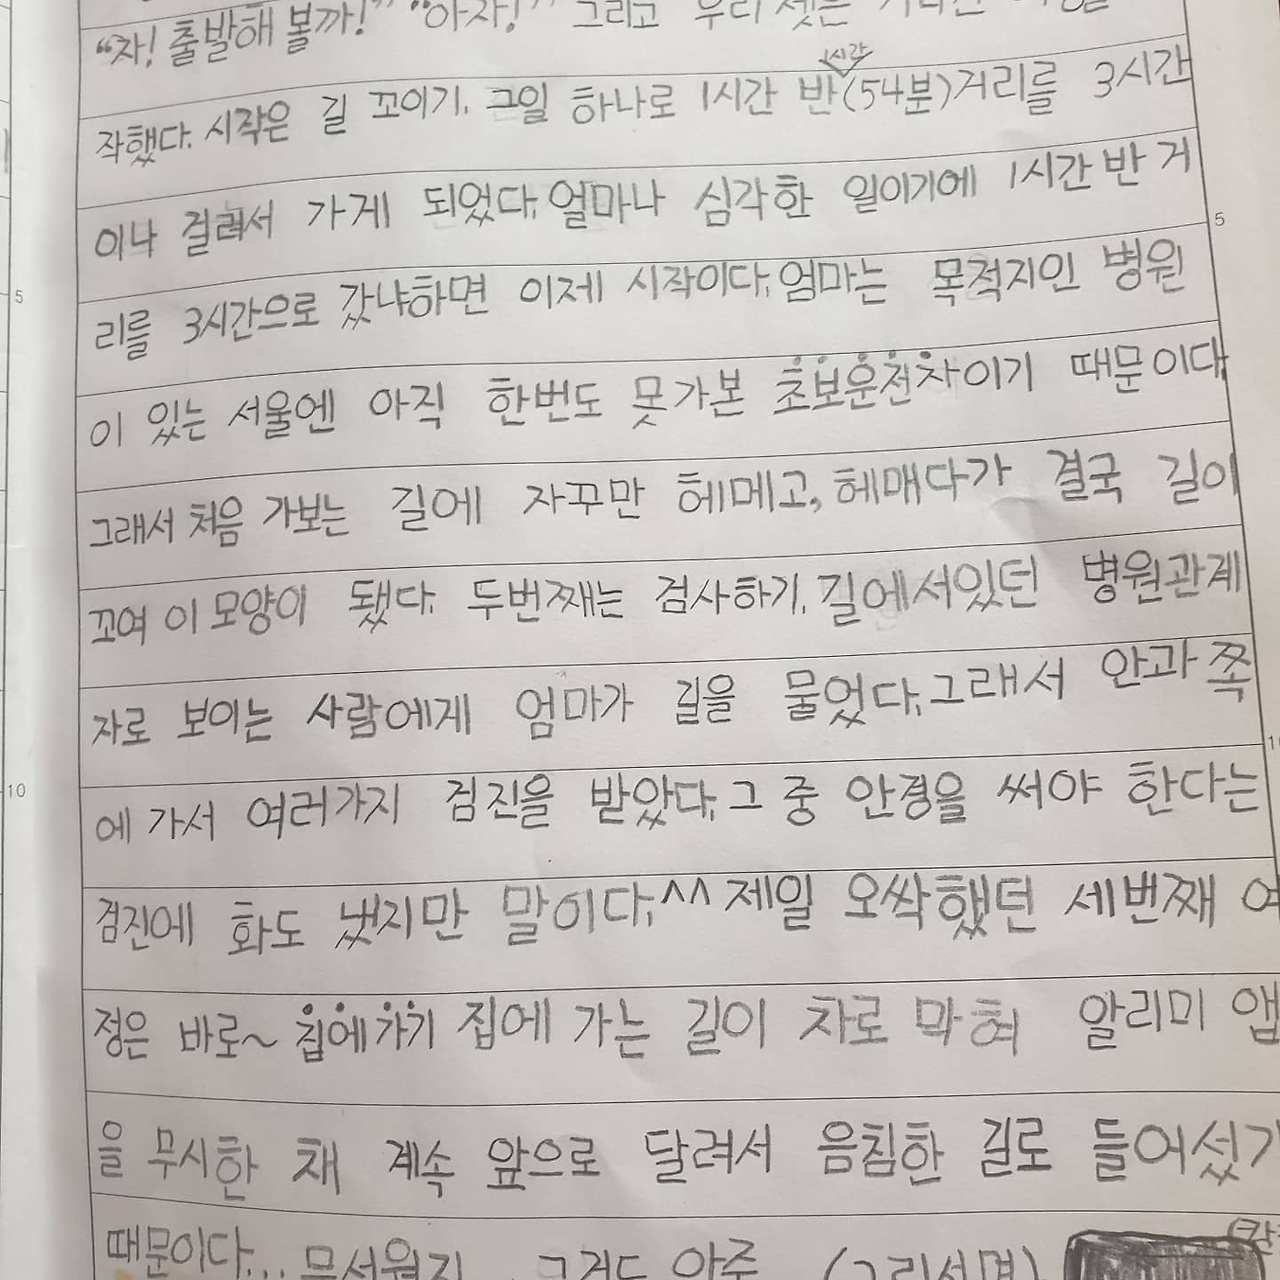 "자! 출발해 볼까!" "아자!" 그리고 우리 셋은
1시간
작했다. 시작은 길 꼬이기. 그일 하나로 1시간 반(54분)거리를 3시간
이나 걸려서 가게 되었다. 얼마나 심각한 일이기에 1시간 반 거
5
리를 3시간으로 갔냐하면 이제 시작이다. 엄마는 목적지인 병원
5
이 있는 서울엔 아직 한번도 못가본 초보운전차이기 때문이다.
그래서 처음 가보는 길에 자꾸만 헤메고, 헤매다가 결국 길이
꼬여 이 모양이 됐다. 두번째는 검사하기. 길에서있던 병원관계
자로 보이는 사람에게 엄마가 길을 물었다. 그래서 안과 쪽
10
에 가서 여러가지 검진을 받았다. 그 중 안경을 써야 한다는
검진에 화도 냈지만 말이다. ^^ 제일 오싹했던 세번째 여
정은 바로~ 집에가기 집에 가는 길이 차로 막혀 알리미 앱
을 무시한 채 계속 앞으로 달려서 음침한 길로 들어섰기
때문이다... 무서워지 그것도 아주 (그리설명)